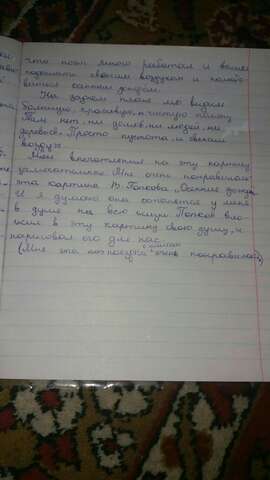 что поэт много работал и вышел
подышать свежим воздухом и полю-
бинся осеннем дождём.
На заднем плане мы видим
большую, красивую, и чистую поляну
Там нет, ни домов, ни людей, ни
деревьев. Просто пустота, и свежий
воздух.
Мои впечатления на эту картину
замечательные. Мне очень понравилась
эта картина В. Попкова „Осение дожди
И я думаю она останется у меня
в душе на всю жизнь Попков вло-
жил в эту картину свою душу, и
нарисовал его для нас.
(Мне эта очень понравилась)